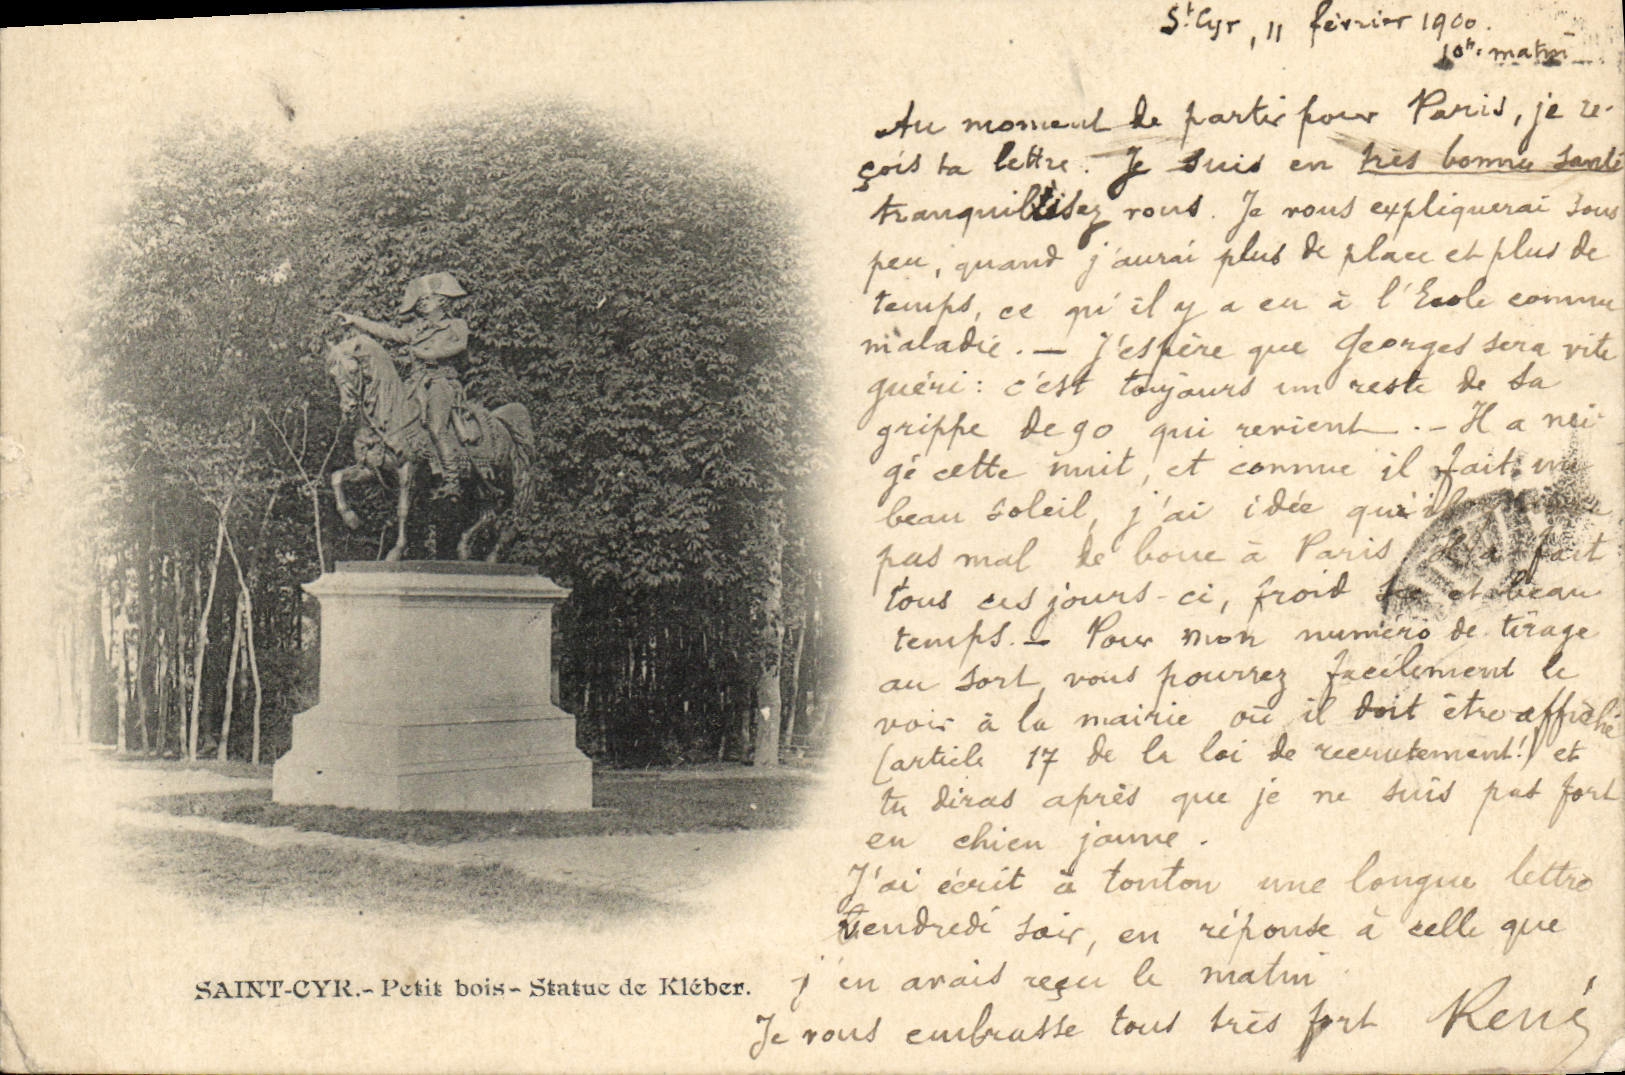 St Cyr, 11 février 1900.
10h. matin
Au moment de partir pour Paris, je re-
çois ta lettre. Je suis en très bonne santé
tranquillisez vous. Je vous expliquerai sous
peu, quand j'aurai plus de place et plus de
temps, ce qu'il y a eu à l'Ecole comme
maladie. — J'espère que Georges sera vite
guéri: c'est toujours un reste de sa
grippe de 90 qui revient. — Il a nei-
gé cette nuit, et comme il fait un
beau soleil, j'ai idée qu'il
pas mal de boue à Paris. Il a fait
tous ces jours-ci, froid sec et beau
temps. — Pour mon numéro de tirage
au sort, vous pourrez facilement le
voir à la mairie où il doit être affiché
(article 17 de la loi de recrutement!) et
tu diras après que je ne suis pas fort
en chien jaune.
J'ai écrit à tonton une longue lettre
Vendredi soir, en réponse à celle que
j'en avais reçu le matin
Je vous embrasse tous très fort René
SAINT-CYR.- Petit bois - Statue de Kléber.